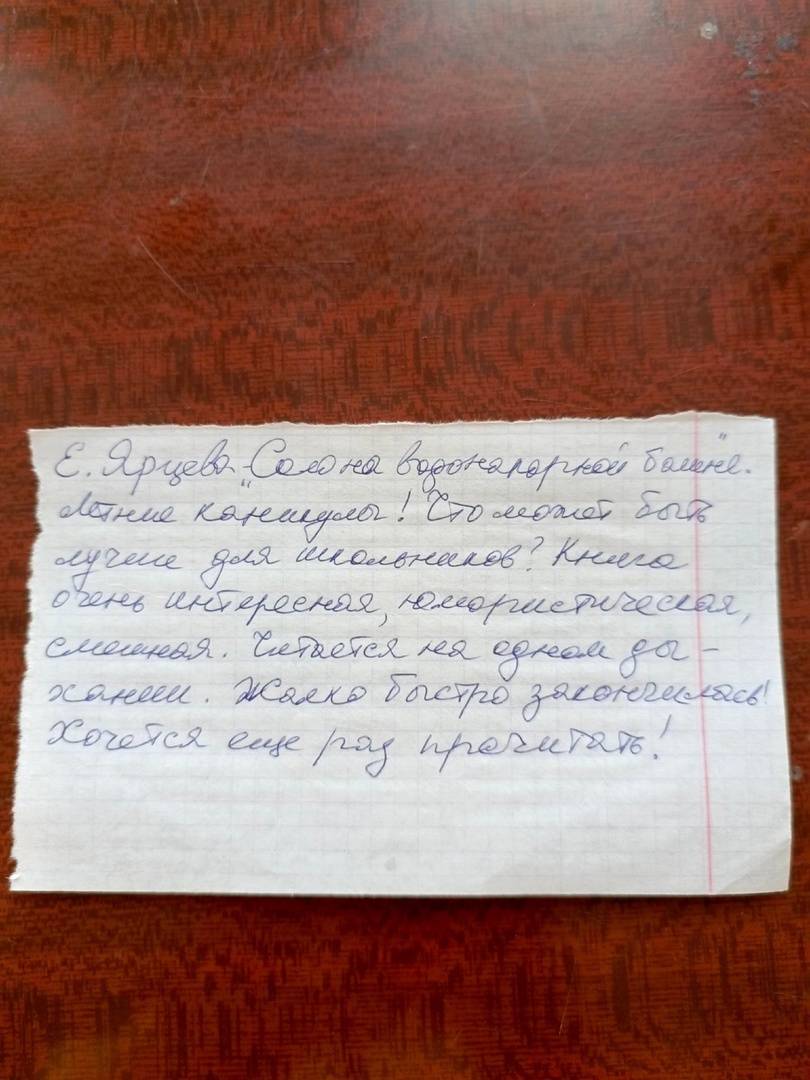 Е. Ярцева - „Соло на водонапорной башне".
Летние каникулы! Что может быть
лучше для школьников? Книга
очень интересная, юмористическая,
смешная. Читается на одном ды-
хании. Жалко быстро закончилась!
Хочется еще раз прочитать!